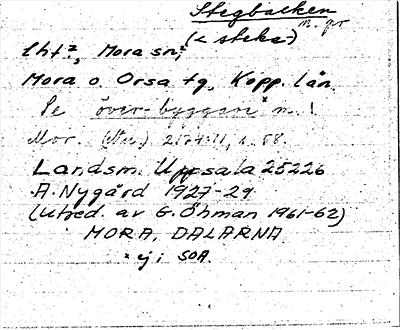 Stegbacken
m. gr
(< steka-)
lht?, Mora sn,
Mora o. Orsa tg, Kopp. län.
Se över-byggaren* m. !
Mor. (Nu.)
Landsm. Uppsala 25226
A. Nygård 1927-29
(Utred. av G. Öhman 1961-62)
MORA, DALARNA.
* ej i SOA.